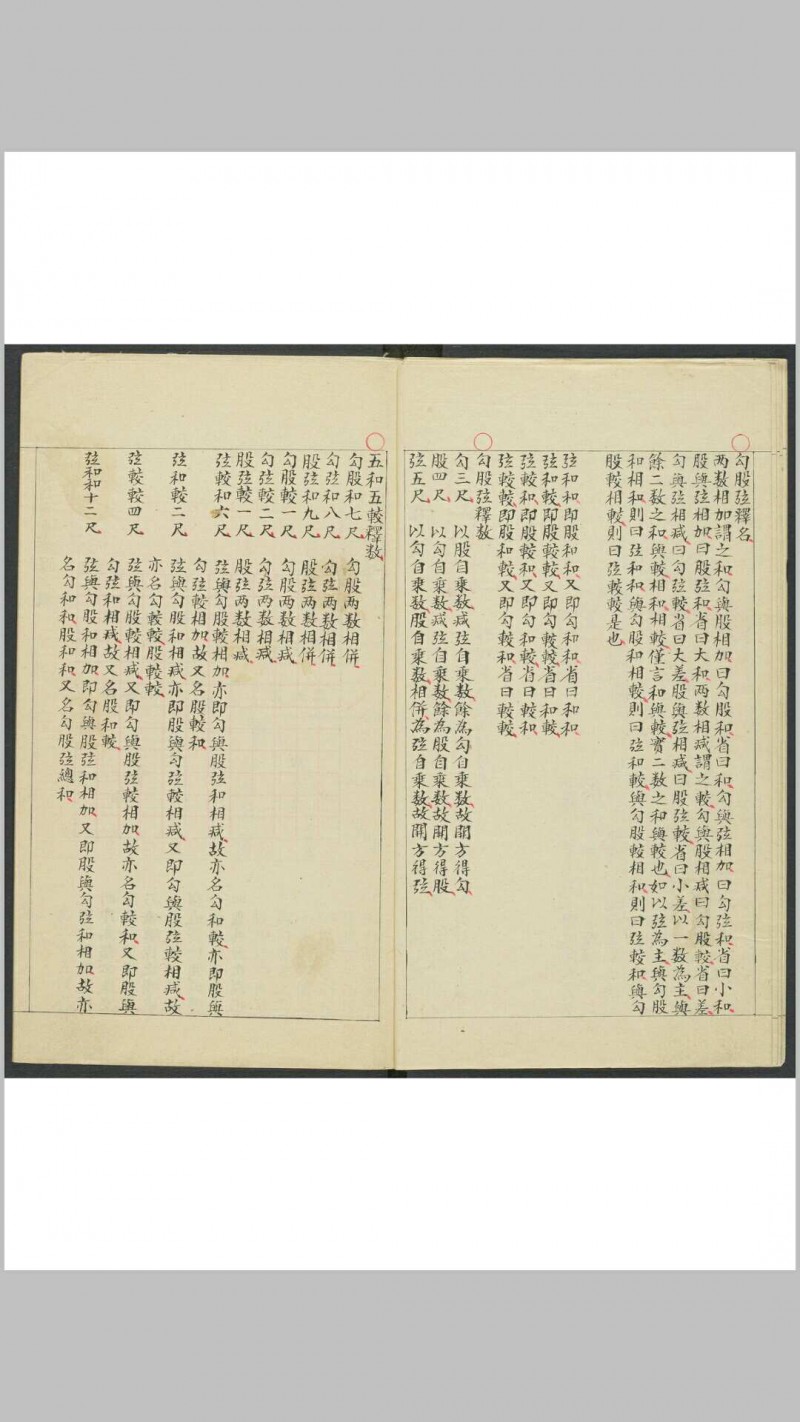 勾股弦釋名
两数相加謂之和勾與股相加曰勾股和省曰和勾與弦相加曰勾弦和省曰小和
股與弦相加曰股弦和省曰大和两数相减謂之較勾與股相减曰勾股較省曰差
勾與弦相减曰勾弦較省曰大差股與弦相减曰股弦較省曰小差以一数為主與
餘二数之和與較相和相較僅言和與較實二数之和與較也如以弦為主與勾股
和相和則曰弦和和與勾股和相較則曰弦和較與勾股較相和則曰弦較和與勾
股較相較則曰弦較較是也
弦和和即股和和又即勾和和省曰和和
弦和較即股較較又即勾較較省曰和較
弦較和即股較和又即勾和較省曰較和
弦較較即股和較又即勾較和省曰較較
勾股弦釋数
勾三尺 以股自乘数减弦自乘数餘為勾自乘数故開方得勾
股四尺 以勾自乘数减弦自乘数餘為股自乘数故開方得股
弦五尺 以勾自乘数股自乘数相併為弦自乘数故開方得弦
五和五較釋数
勾股和七尺 勾股两数相併
勾弦和八尺 勾弦两数相併
股弦和九尺 股弦两数相併
勾股較一尺 勾股两数相减
勾弦較二尺 勾弦两数相减
股弦較一尺 股弦两数相减
弦較和六尺 弦與勾股較相加亦即勾與股弦和相减故亦名勾和較亦即股與
勾弦較相加故又名股較和
弦和較二尺 弦與勾股和相减亦即股與勾弦較相减又即勾與股弦較相减故
亦名勾較較股較較
弦較較四尺 弦與勾股較相减又即勾與股弦較相加故亦名勾較和又即股與
勾弦和相减故又名股和較
弦和和十二尺 弦與勾股和相加即勾與股弦和相加又即股與勾弦和相加故亦
名勾和和股和和又名勾股弦總和